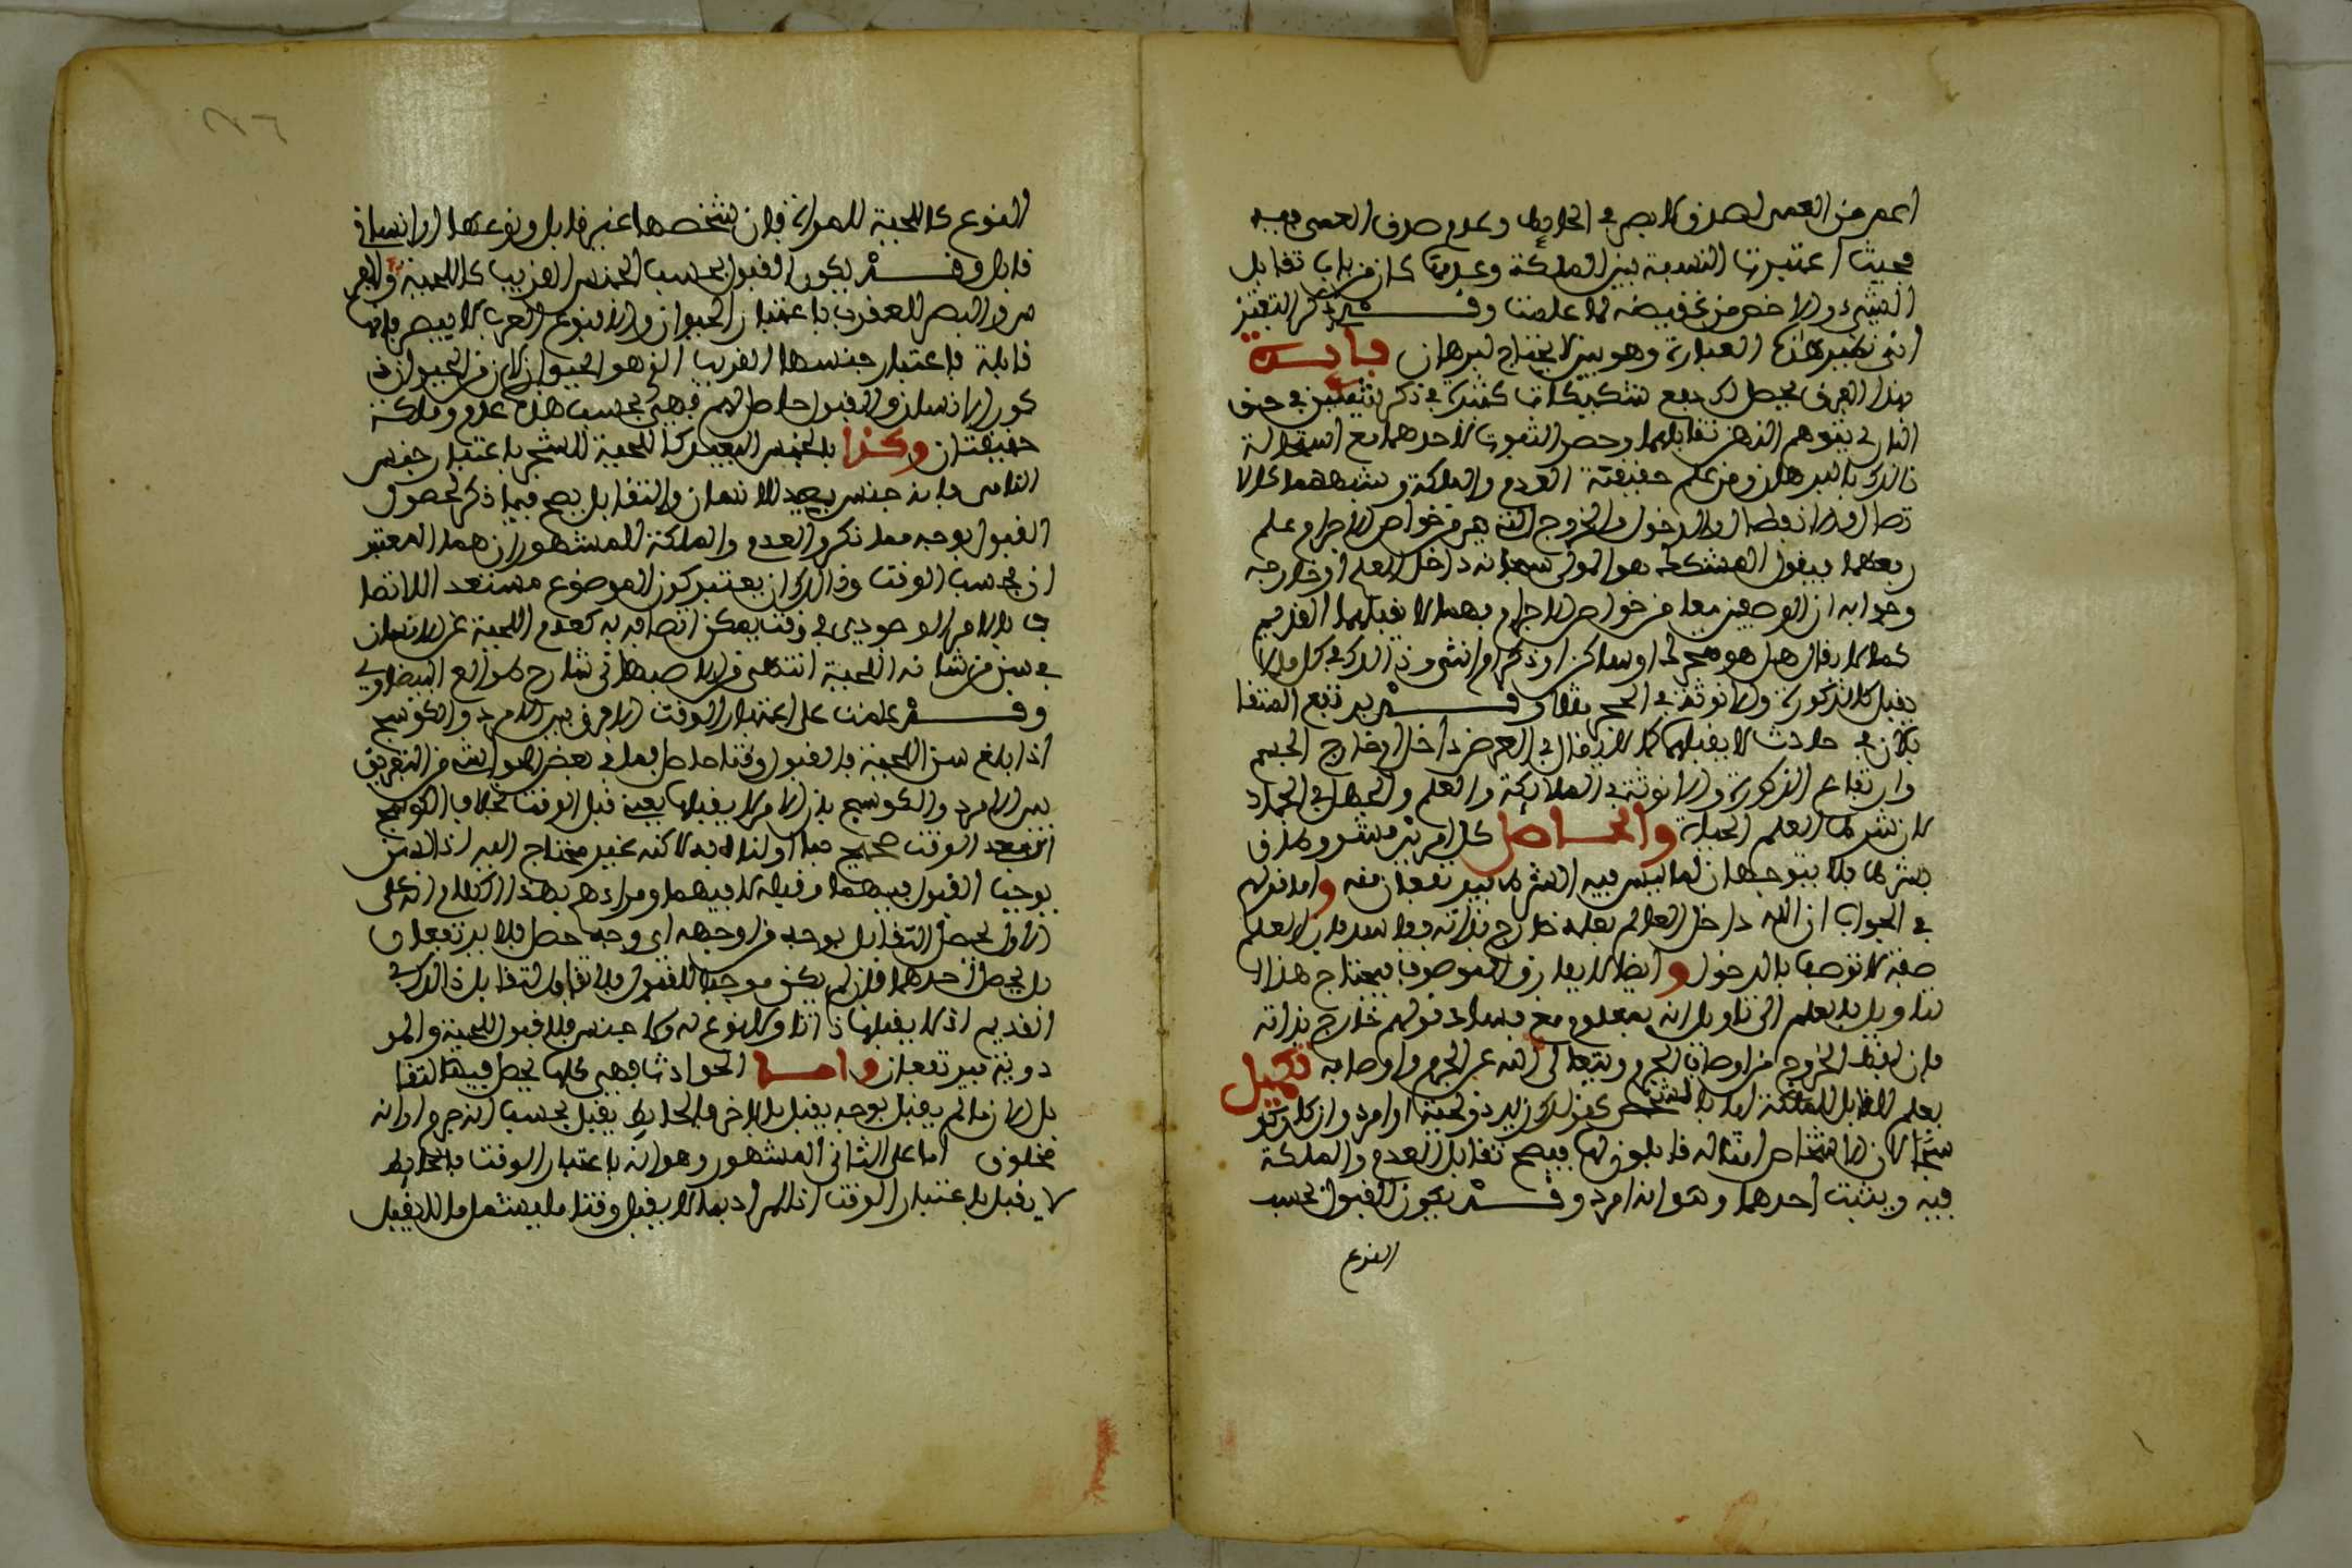 اعم من العمى لصدق لا بصر في الحائط وعدم صدق العمى فيه
فحيث اعتبرت النسبة بين الملكة وعدمها كان من باب تقابل
الشيء والاخص من نقيضه لما علمت وقد ذكر
هذه العبارة وهو بين لا يحتاج لبرهان فايدة
هذا الفرق يحصل لك دفع تشكيكات كثيرة في ذكر شيئين في حق
الباري يتوهم الذهن تقابلهما وحصر الثبوت لاحدهما مع استحالة
ذالك بالبرهان ومن علم حقيقة العدم والملكة وشبههما كالا
تصال والانفصال والدخول والخروج التي هي من خواص الاجرام وعلم
رفعهما فيقول المشكك هو المولى سبحانه داخل العلم او خارجه
وجوابه ان الوصفين معا من خواص الاجرام فهما لا يقبلهما القديم
كما لا يقال هل هو متحرك او ساكن او ذكر او انثى وذالك في كل ما لا
يقبل كالذكورة والانوثة في الحجر مثلا وقد يرتفع المتقا
بلان في حادث لا يقبلهما كما لا يقال في العرض داخل او خارج الجسم
وارتفاع الذكورة والانوثة في الملائكة والعلم والجهل في الجماد
لان شرط العلم الحياة والحاصل كل امرين مشروطان
بشرط فلا يتوجهان لما ليس فيه الشرط بل يرتفعان عنه واما قولهم
في الجواب ان الله داخل العالم بعلمه خارج بذاته ففاسد فان العلم
صفة لا توصف بالدخول وايضا لا يفارق الموصوف فيحتاج هذا
تاويل بالعلم الى تاويل انه بمعلوم مع فساد قولهم خارج بذاته
فان لفظ الخروج من اوصاف الجرم ويتعالى الله عن الجرم واوصافه تكميل
يعلم القابل للملكة اما بالشخص كقولك زيد ذو لحية او امرد وان كان كو
سجا لان اشخاص امثاله قابلون لها فيصح تقابل العدم والملكة
فيه ويثبت احدهما وهو انه امرد وقد يكون القبول بحسب
النوع
النوع كاللحية للمراة فان شخصها غير قابل ونوعها الانساني
قابل وقد يكون القبول بحسب الجنس القريب كاللحية للفر
س والبصر للعقرب باعتبار الحيوان والا فنوع العقرب لا يبصر فانها
قابلة باعتبار جنسها القريب الذي هو الحيوان لان من الحيوان ذ
كور الانسان والقبول حاصل لهم فهي بحسب هذا عدم وملكة
حقيقيتان وكذا بالجنس البعيد كاللحية للشجر باعتبار جنس
النامي فانه جنس بعيد للانسان والتقابل يصح فيما ذكر لحصول
القبول بوجه مما ذكر والعدم والملكة المشهوران هما المعتبر
ان بحسب الوقت وذالك ان يعتبر كون الموضوع مستعد اللاتصا
ف بالامر الوجودي في وقت يمكن اتصافه به كعدم اللحية عن الانسان
في سن من شانه اللحية انتهى قاله الاصبهاني شارح طوالع البيضاوي
وقد علمت على اعتبار الوقت الا فرق بين الامرد والكوسج
اذا بلغ سن اللحية فالقبول وقتا حاصل فما في بعض الحواشي من التفريق
بين الامرد والكوسج بان الامر لا يقبلها يعني قبل الوقت بخلاف الكوسج
اي بعد الوقت صحيح لاكنه غير محتاج اليه اذ السن
يوجب القبول فيهما وقبله لا فيهما ومرادهم بهذا الكلام انه على
الاول يحصل التقابل بوجه من اوجهه اي وجه حصل فلا يرتفعان
بل يحصل احدهما فان لم يكن موجب للقبول فلا تقابل ذالك في
القديم اذ لا يقبلها ذاتا ولا نوع له ولا جنس فلا قبول للحية والمر
دوية فيرتفعان واما الحوادث فهي كلها يحصل فيها التقا
بل لان ما لم يقبل بوجه يقبل بالاخر فالحائط يقبل بحسب انه جرم او انه
مخلوق اما على الثاني المشهور وهو انه باعتبار الوقت فالحائط
لا يقبل باعتبار الوقت اذ المراد بما لا يقبل وقتا ما يشمل ما لا يقبل